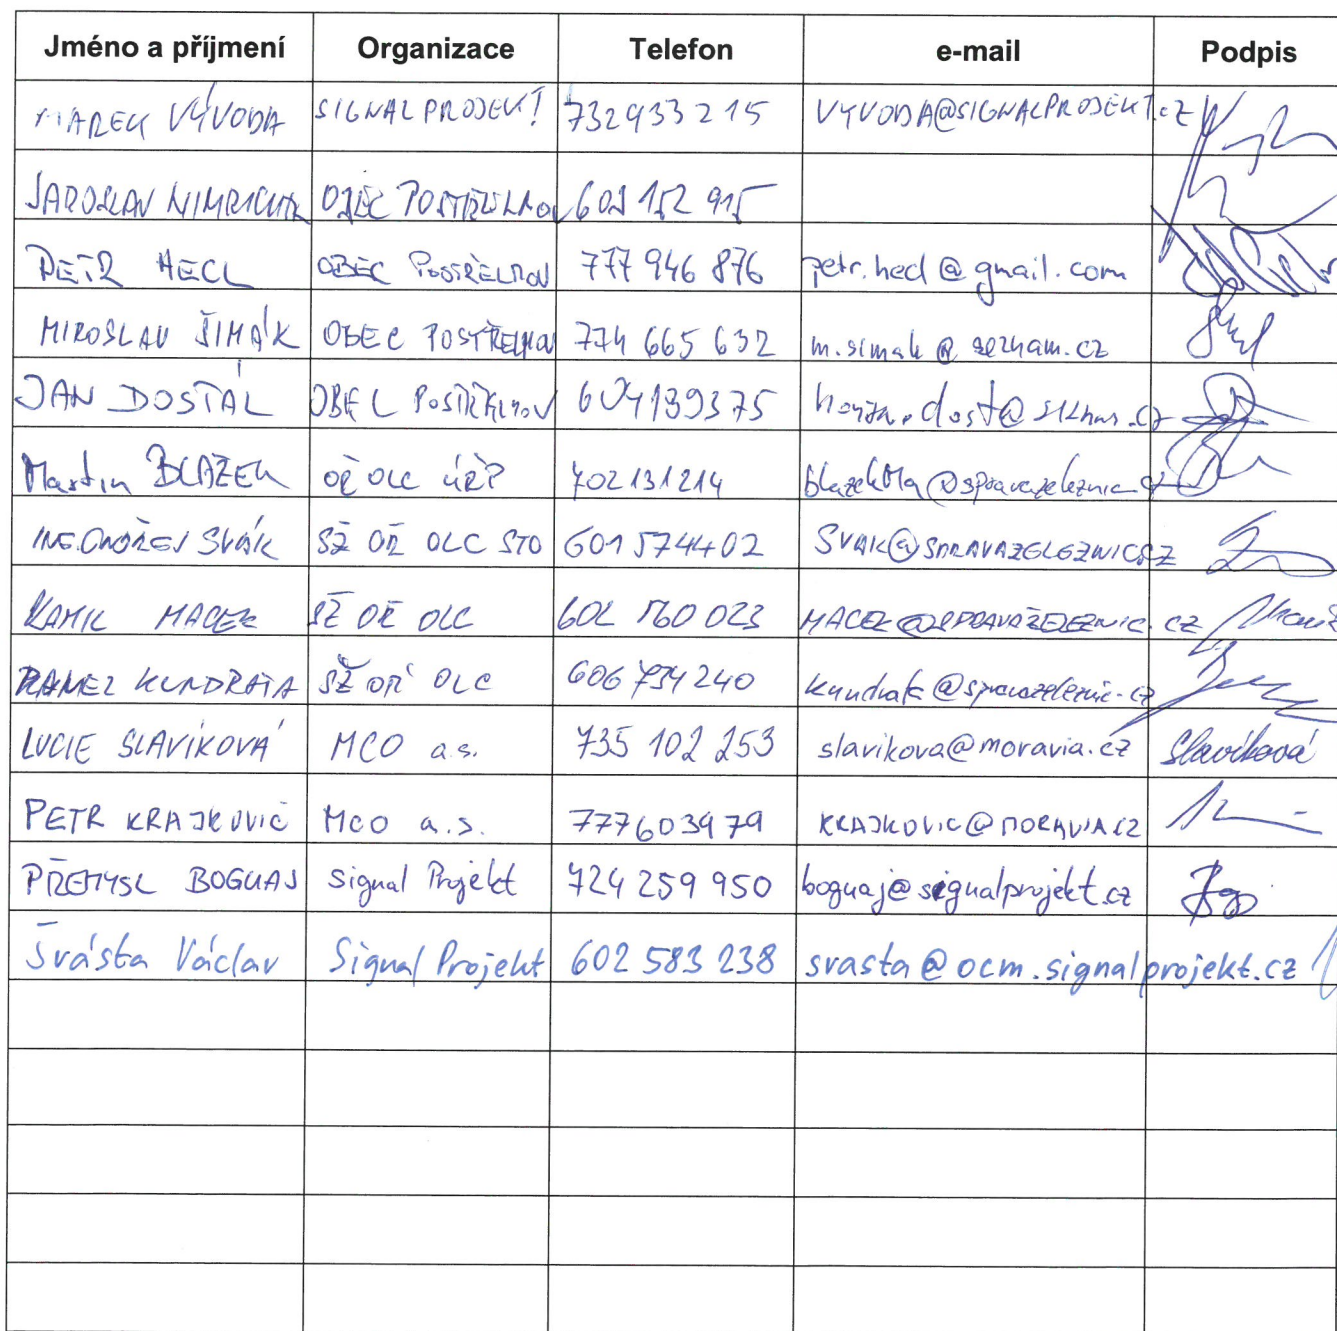 Jméno a příjmení Organizace Telefon e-mail Podpis
MAREK VÝVODA SIGNALPROJEKT 732933215 VYVODA@SIGNALPROJEKT.CZ
JAROSLAV NIMRICHTR OBEC POSTŘELMOV 602 152 915
PETR HECL OBEC POSTŘELMOV 777 946 876 petr.hecl@gmail.com
MIROSLAV ŠIMÁK OBEC POSTŘELMOV 774 665 632 m.simak@seznam.cz
JAN DOSTÁL OBEC POSTŘELMOV 604139375
Martin BLAŽEK OŘ OLC ÚŘP 702131214 blazekMa@spravazeleznic.cz
ING. ONDŘEJ SVÁK SŽ OŘ OLC STO 601 574402 SVAK@SPRAVAZELEZNIC.CZ
KAMIL MACEK SŽ OŘ OLC 602 760 023 MACEK@SPRAVAŽELEZNIC.CZ
KUNDRATA SŽ OŘ OLC 606 754 240 @spravazeleznic.cz
LUCIE SLAVÍKOVÁ MCO a.s. 735 102 253 slavikova@moravia.cz Slavíková
PETR KRAJKOVIČ MCO a.s. 777603979 KRAJKOVIC@MORAVIA.CZ
PŘEMYSL BOGUAJ Signal Projekt 724 259 950 boguaj@signalprojekt.cz
Švásta Václav Signal Projekt 602 583 238 svasta@ocm.signalprojekt.cz